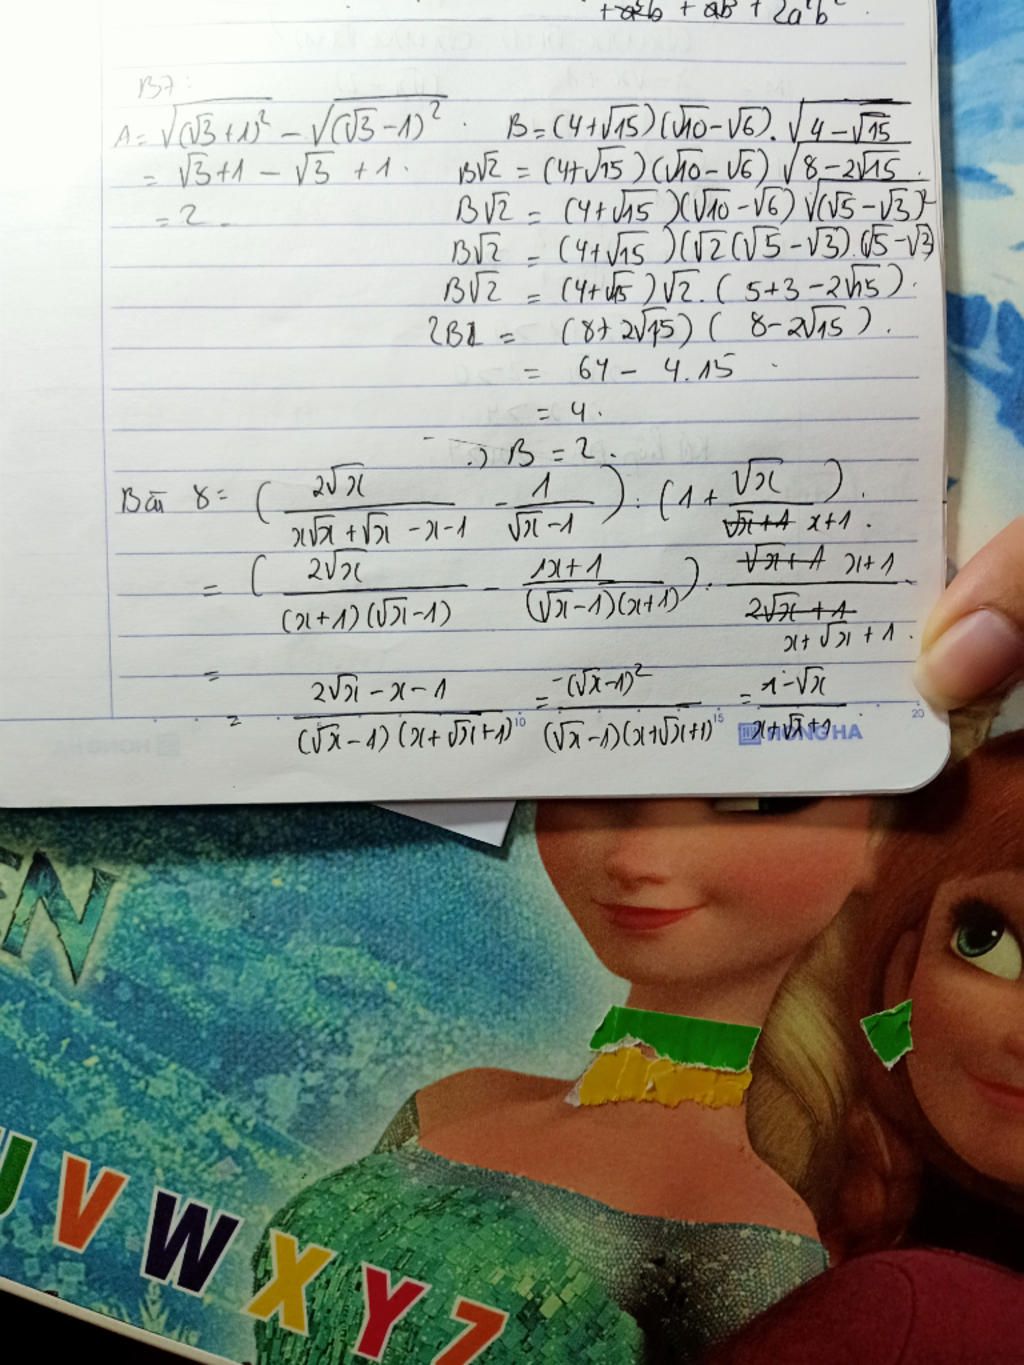 + a²b + ab² + 2a²b²
B7:
A = √(√3+1)² − √(√3−1)² .
= √3+1 − √3 +1 .
= 2 .
B = (4+√15)(√10−√6).√4−√15
B√2 = (4+√15)(√10−√6)√8−2√15 .
B√2 = (4+√15)(√10−√6)√(√5−√3)²
B√2 = (4+√15)(√2(√5−√3).(√5−√3)
B√2 = (4+√15)√2.(5+3−2√15).
2B = (8+2√15)(8−2√15).
= 64 − 4.15
= 4.
B = 2.
Bài 8 = (2√x / (x√x+√x−x−1) − 1 / (√x−1)) : (1 + √x / (x+1)).
= (2√x / ((x+1)(√x−1)) − (x+1) / ((√x−1)(x+1))) . (x+1) / (x+√x+1).
= (2√x−x−1) / ((√x−1)(x+√x+1)) = −(√x−1)² / ((√x−1)(x+√x+1)) = (1−√x) / (x+√x+1).
10 15 20
HONG HA
EN
U V W X Y Z